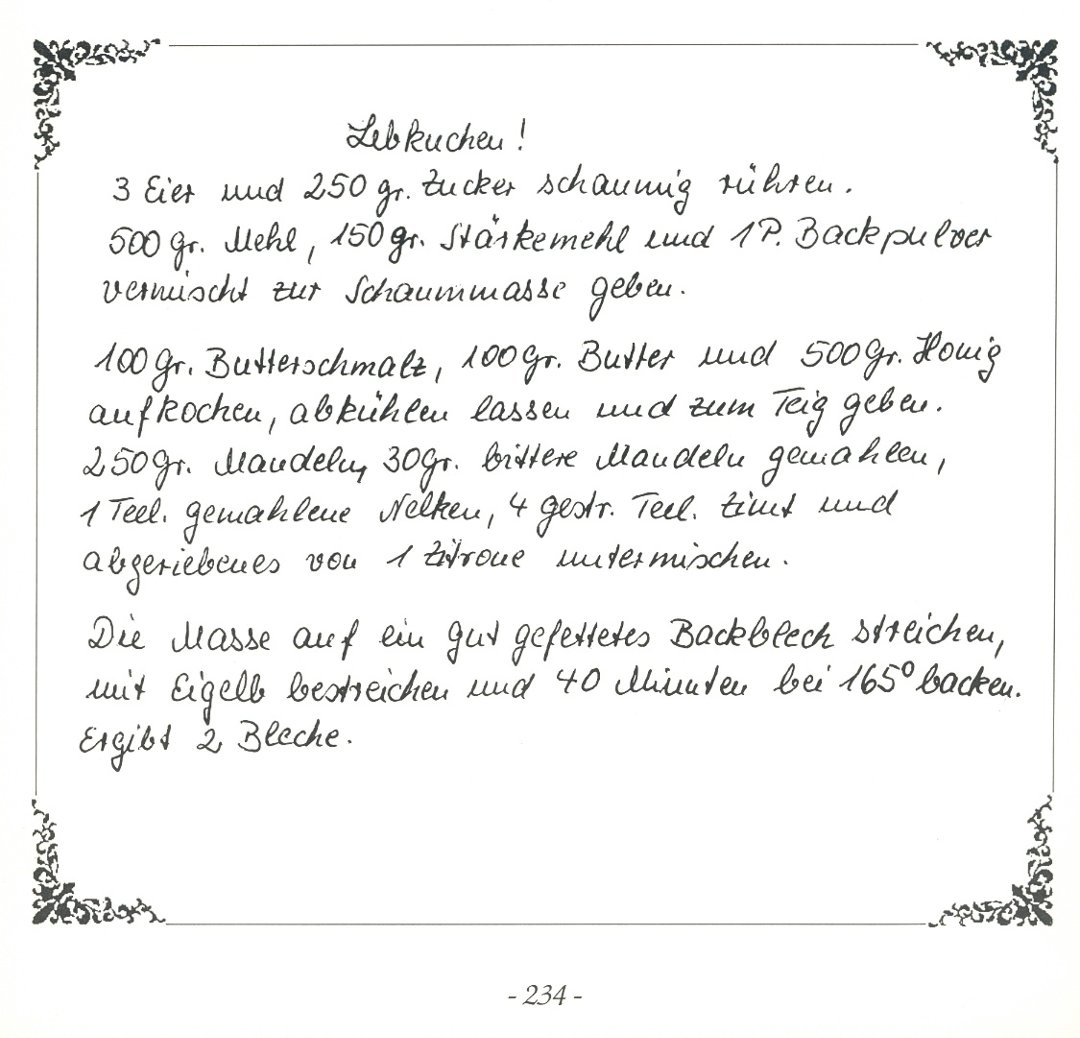 Lebkuchen!
3 Eier und 250 gr. Zucker schaumig rühren.
500 gr. Mehl, 150 gr. Stärkemehl und 1 P. Backpulver
vermischt zur Schaummasse geben.
100 gr. Butterschmalz, 100 gr. Butter und 500 gr. Honig
aufkochen, abkühlen lassen und zum Teig geben.
250 gr. Mandeln, 30 gr. bittere Mandeln gemahlen,
1 Teel. gemahlene Nelken, 4 gestr. Teel. Zimt und
abgeriebenes von 1 Zitrone untermischen.
Die Masse auf ein gut gefettetes Backblech streichen,
mit Eigelb bestreichen und 40 Minuten bei 165° backen.
Ergibt 2 Bleche.
- 234 -